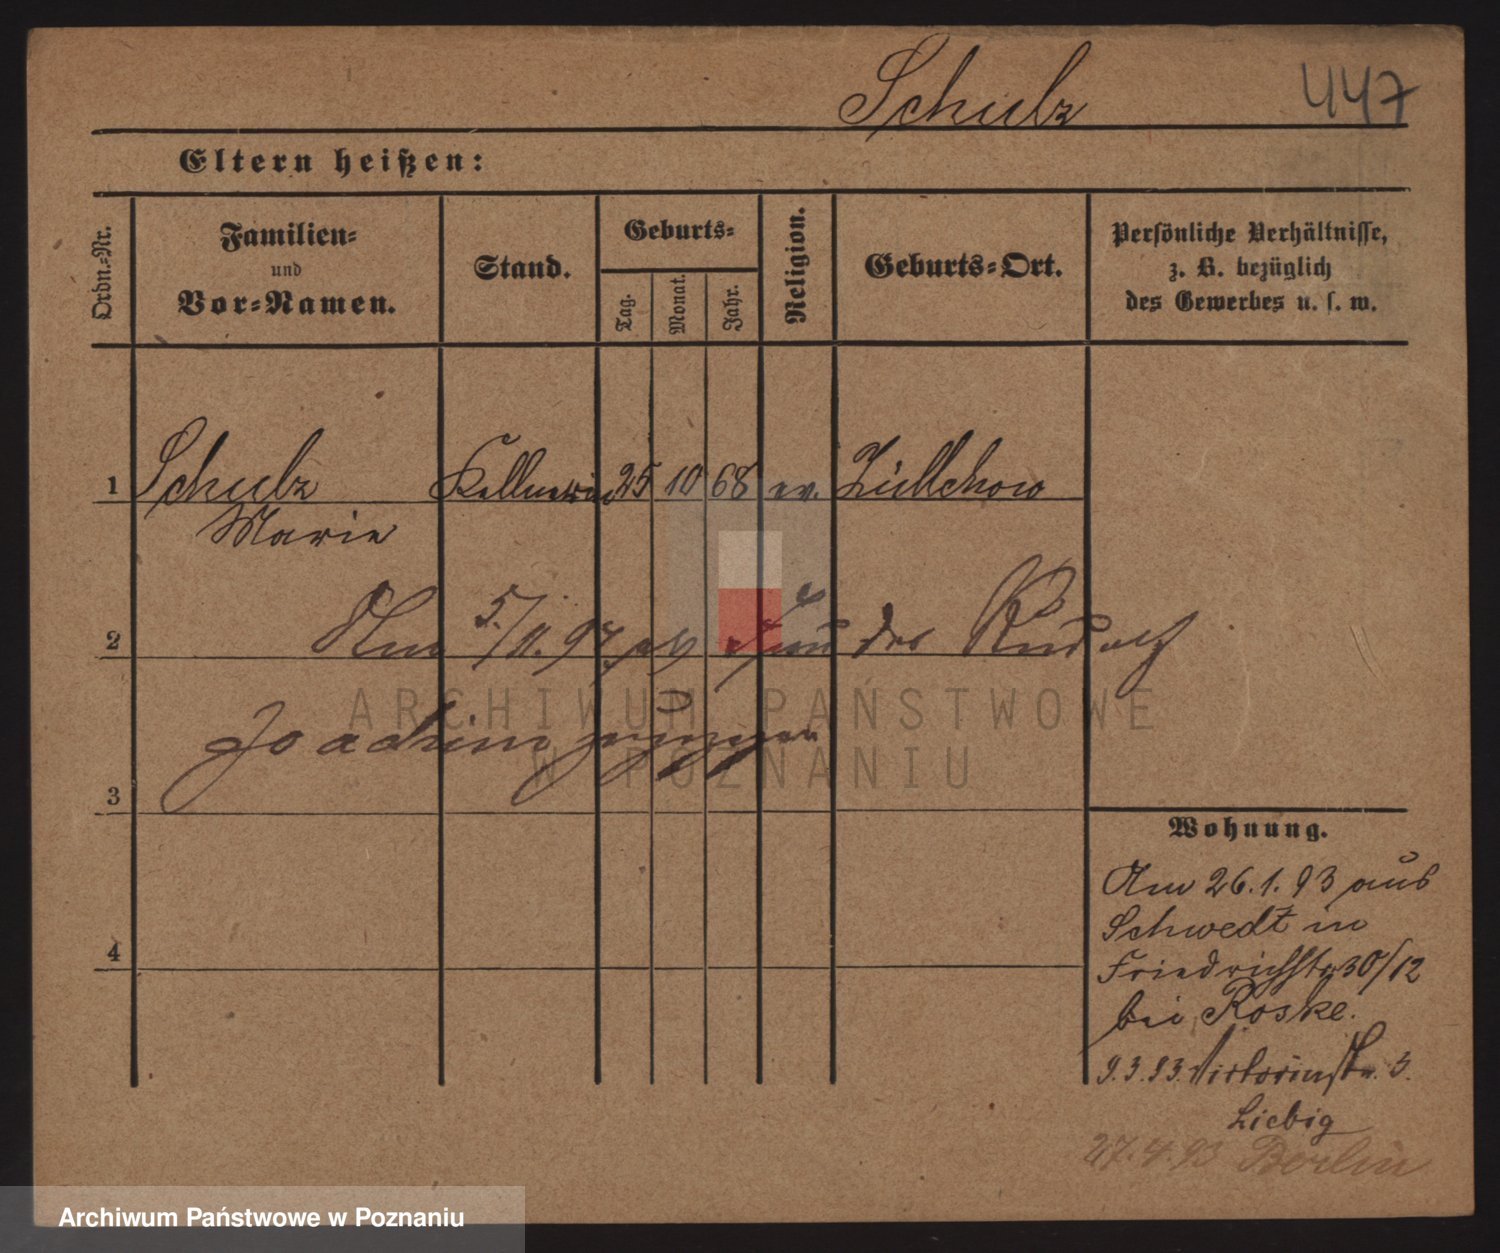 Schulz 447
Eltern heißen:
Ordn.-Nr.
Familien-
und
Vor-Namen.
Stand.
Geburts-
Tag.
Monat.
Jahr.
Religion.
Geburts-Ort.
Persönliche Verhältnisse,
z. B. bezüglich
des Gewerbes u. s. w.
1 Schulz Kellnerin 25 10 68 ev. Züllchow
Marie
2 Am 5./11. 97 als Frau des Rudolf
Joachim
3
4
Wohnung.
Am 26.1.93 aus
Schwedt in
Friedrichstr 30/12
bei Roske.
9.3.93. Victoriastr. 3.
Liebig
27.4.93 Berlin
ARCHIWUM PAŃSTWOWE
W POZNANIU
Archiwum Państwowe w Poznaniu